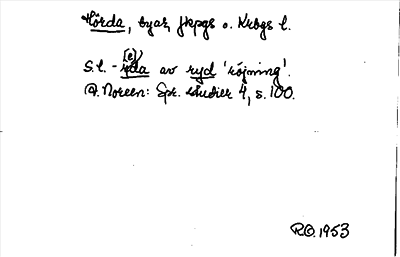 Hörda, byar, Jkpgs o. Krbgs l.
S.l. -r(e)da av ryd 'röjning'.
A. Noreen: Spr. studier 4, s. 100.
R.O. 1953